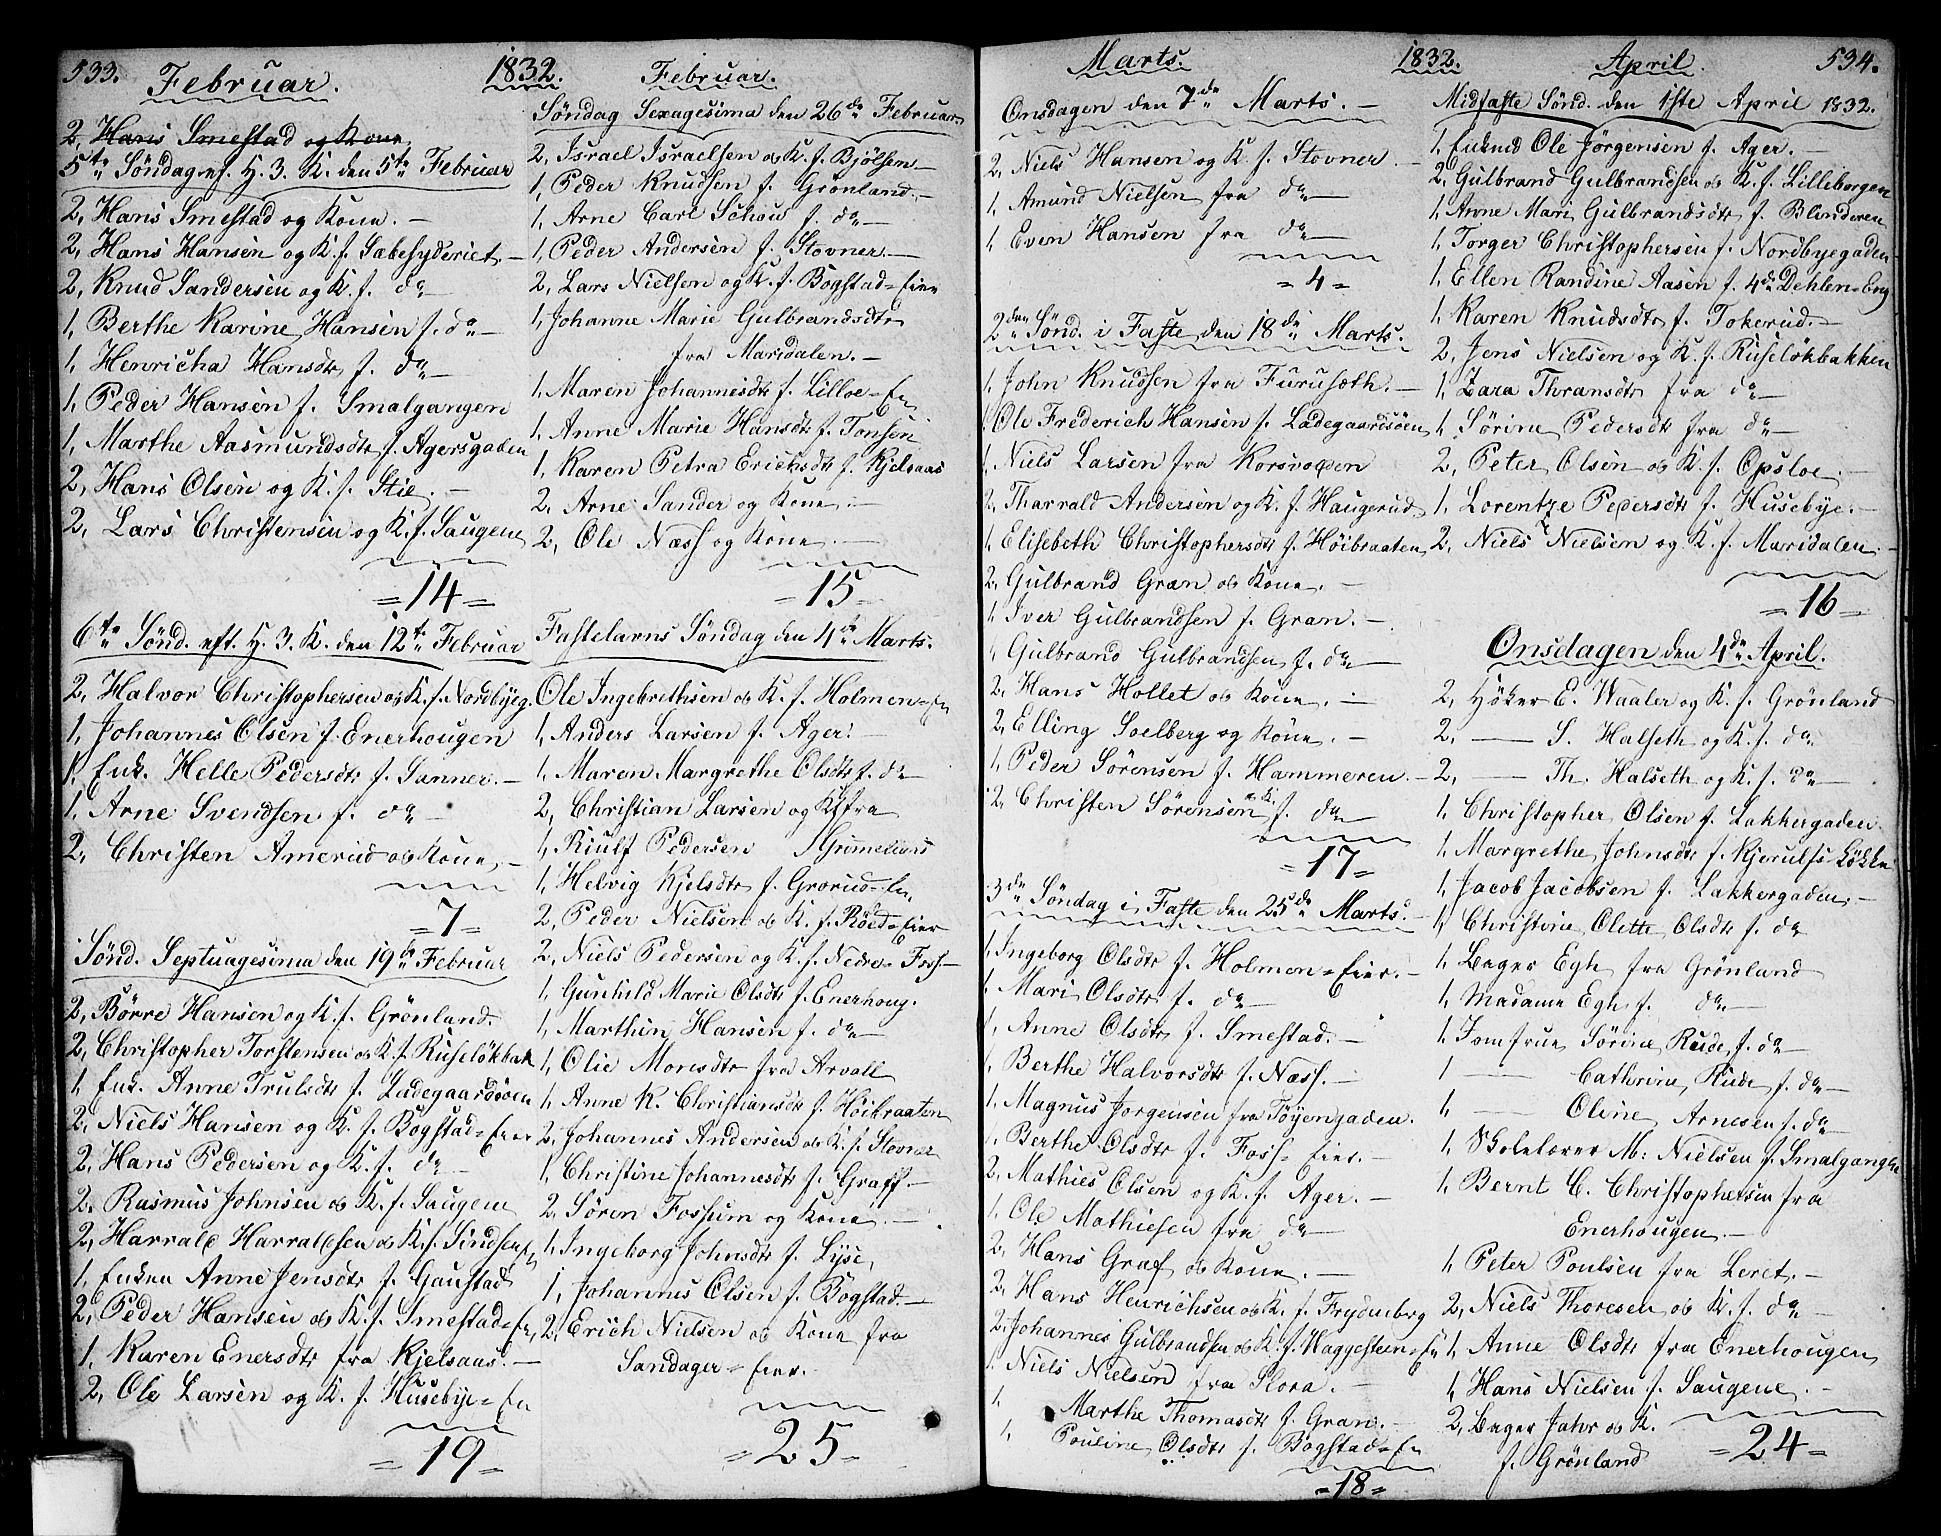 533. Februar. 1832. Februar.
2, Hans Smestad og Kone,
5te Söndag ef. H. 3. K. den 5te Februar
2, Hans Smestad og Kone. –
2, Hans Hansen og K. f. Sæbesyderiet –
2, Knud Sandersen og K. f. do –
1, Berthe Karine Hansen f. do –
1, Henricha Hansdtr f. do –
1, Peder Hansen f. Smalgangen
1, Marthe Aasmundsdtr f. Agersgaden
2, Hans Olsen og K. f. Stie. –
2, Lars Christensen og K. f. Saugene
=14=
6te Sönd. eft. H. 3. K. den 12te Februar
2, Halvor Christophersen og K. f. Nordbyeg.
1, Johannes Olsen f. Enerhougen
1, Enk. Helle Pedersdtr f. Sanner. –
1, Arne Svendsen f. do –
2, Christen Amerud og Kone, –
=7=
Sönd. Septuagesima den 19de Februar
2, Börre Hansen og K. f. Grönland.
2, Christopher Torstensen og K. f. Ruselökbak
1, Enk. Anne Trulsdtr f. Ladegaardsöen
2, Niels Hansen og K. f. Bogstad=Eier
2, Hans Pedersen og K. f. do –
2, Rasmus Johnsen og K. f. Saugene
2, Harrald Harraldsen og K. f. Sindsen
1, Enken Anne Jensdtr f. Gaustad
2, Peder Hansen og K. f. Smestad=Ei,
1, Karen Enersdtr fra Kjelsaas. –
2, Ole Larsen og K. f. Husebye=Ei
=19=
Söndag Sexagesima den 26de Februar
2, Israel Israelsen og K. f. Bjölsen –
1, Peder Knudsen f. Grönland. –
1, Arne Carl Schou f. do –
1, Peder Andersen f. Stovner. –
2, Lars Nielsen og K. f. Bogstad=Eier
1, Johanne Marie Gulbrandsdtr
fra Maridalen. –
1, Maren Johannesdtr f. Lilloe=Ei
1, Anne Marie Hansdtr f. Tonsen
1, Karen Petra Erichsdtr f. Kjelsaas
2, Arne Sander og Kone. –
2, Ole Næss og Kone. –
=15=
Fastelavns Söndag den 4de Marts.
Ole Ingebrethsen og K. f. Holmen=Ei
1, Anders Larsen f. Ager.
1, Maren Margrethe Olsdtr f. do
2, Christian Larsen og K. fra
1, Riulf Pedersen Grimelund
1, Helvig Kjelsdtr f. Grorud=Ei,
2, Peder Nielsen og K. f. Röed=Eier
2, Niels Pedersen og K. f. Nedre=Foss –
1, Gunhild Marie Olsdtr f. Enerhoug.
1, Marthin Hansen f. do –
1, Olie Monsdtr fra Arvall
1, Anne K. Christiansdtr f. Höibraaten
2, Johannes Andersen og K. f. Stovner
1, Christine Johannesdtr f. Graff. –
2, Sören Fossum og Kone. –
1, Ingeborg Johnsdtr f. Lyse,
1, Johannes Olsen f. Bogstad. –
2, Erich Nielsen og Kone fra
Sandager=Eier.
=25=
Marts. 1832. April. 534.
Onsdagen den 7de Marts. –
2, Niels Hansen og K. f. Stovner. –
1, Amund Nielsen fra do –
1, Even Hansen fra do –
=4=
2den Sönd. i Faste den 18de Marts.
1, John Knudsen fra Furuseth. –
1, Ole Frederich Hansen f. Ladegaardsöen
1, Niels Larsen fra Korsvolden
2, Tharrald Andersen og K. f. Haugerud
1, Elisebeth Christophersdtr f. Höibraaten
2, Gulbrand Gran og Kone. –
1, Iver Gulbrandsen f. Gran. –
1, Gulbrand Gulbrandsen f. do –
2, Hans Hollet og Kone. –
2, Elling Soelberg og Kone. –
1, Peder Sörensen f. Hammeren. –
2, Christen Sörensen og K. f. do –
=17=
3de Söndag i Faste den 25de Marts. –
1, Ingeborg Olsdtr f. Holmen=Eier. –
1. Mari Olsdtr f. do –
1, Anne Olsdtr f. Smestad. –
1. Berthe Halvorsdtr f. Næss. –
1, Magnus Jorgensen fra Töyengaden.
1. Berthe Olsdtr f. Foss=Eier. –
2, Mathies Olsen og K. f. Ager. –
1. Ole Mathiesen fra do –
2, Hans Graf og Kone. –
2, Hans Henrichsen og K. f. Frydenberg
2, Johannes Gulbrandsen og K. f. Haggestein=Ei
1. Niels Nielsen fra Flora. –
1. Marthe Thomasdtr f. Gran. –
1, Pouline Olsdtr f. Bogstad=Ei
=18=
Midfaste Sönd. den 1ste April 1832.
1, Enkemd Ole Jörgensen f. Ager. –
2, Gulbrand Gulbrandsen og K. f. Lilleborgen
1, Anne Mari Gulbrandsdtr f. Blinderen
1, Torger Christophersen f. Nordbyegaden
1, Ellen Randine Aasen f. 4de Dehlen=Eng
1, Karen Knudsdtr f. Tokerud. –
2, Jens Nielsen og K. f. Ruselökbakken
1, Zara Thransdtr fra do –
1, Sörine Pedersdtr fra do –
2, Peter Olsen og K. f. Opsloe. –
1, Lorentze Pedersdtr f. Husebye. –
2, Niels Nielsen og K. f. Maridalen –
=16=
Onsdagen den 4de April.
2, Höker E. Waaler og K. f. Grönland
2, — S. Halseth og K. f. do
2, — Th. Halseth og K. f. do –
1, Christopher Olsen f. Lakkergaden.
1, Margrethe Johnsdtr f. Kjerulfs Lökke
1, Jacob Jacobsen f. Lakkergaden. –
1, Christine Olette Olsdtr f. do
1, Bager Egh fra Grönland
1, Madame Egh f. do –
1. Jomfrue Sörine Rude f. do –
1 — Cathrine Rude f. do –
1, — Oline Arnesen f. do –
1, Skolelærer M. Nielsen f. Smalgangen
1, Bernt C. Christophersen fra
Enerhougen. –
1, Peter Poulsen fra Leret. –
2, Niels Thoresen og K. f. do –
1, Anne Olsdtr fra Enerhougen
1, Hans Nielsen f. Saugene. –
2, Bager Jahr og K.
f. Grönland
=24=